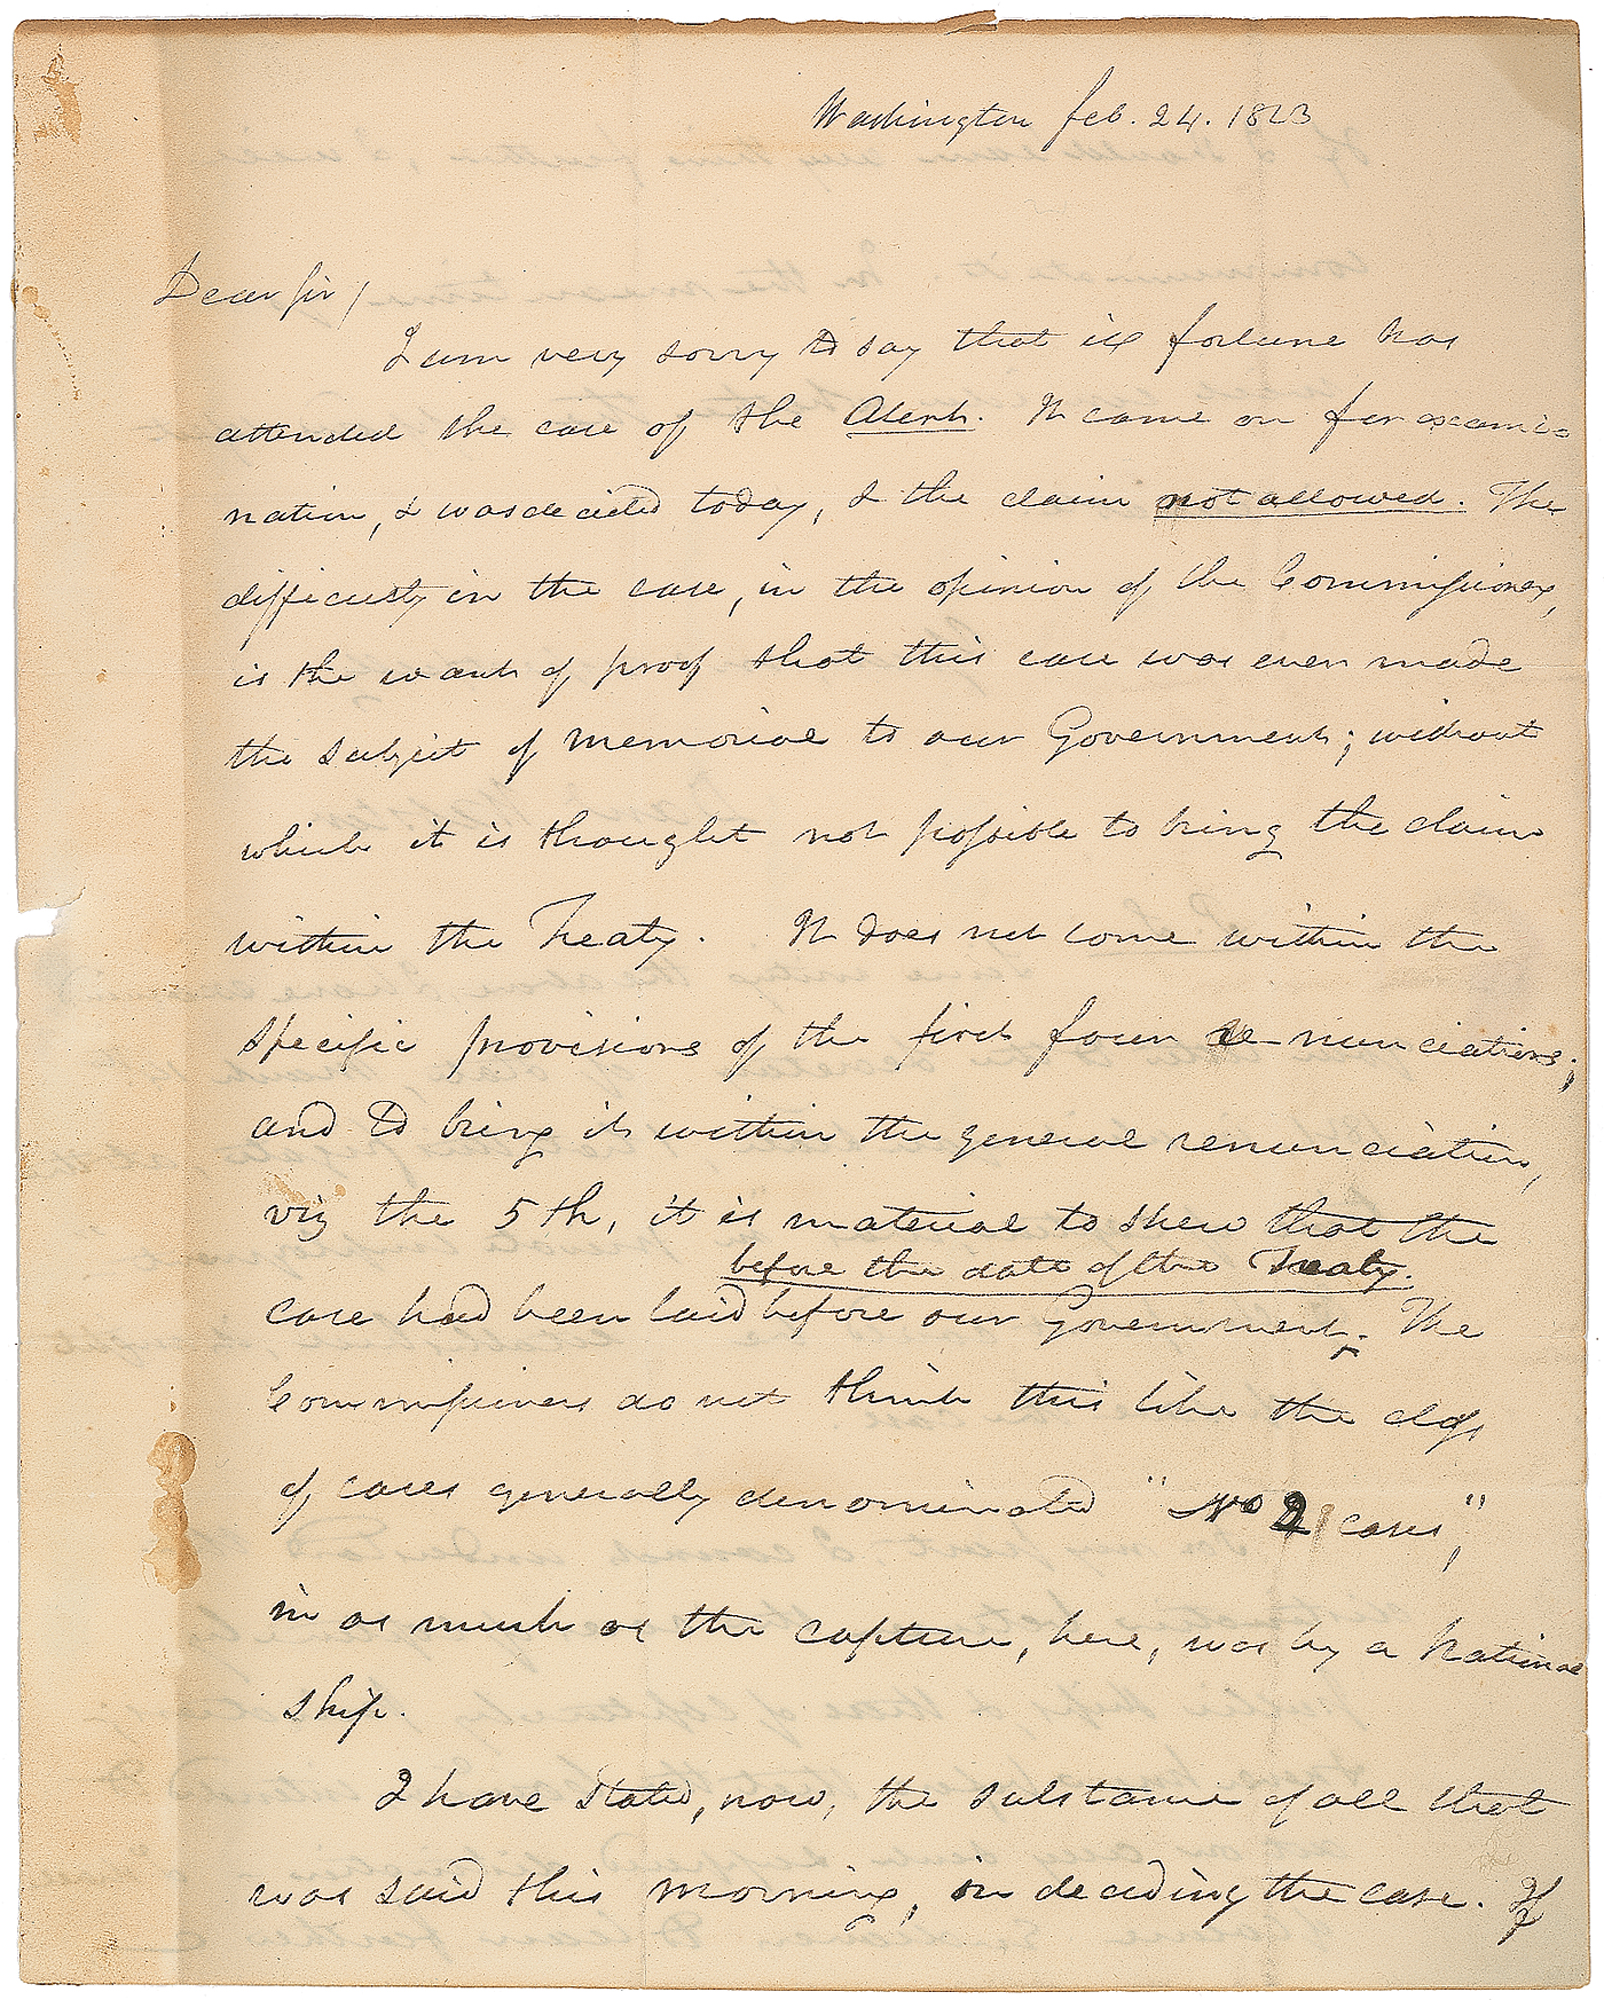 Washington Feb. 24. 1823
Dear Sir/
I am very sorry to say that ill fortune has
attended the case of the Alert. It came on for exami=
nation, & was decided today, & the claim not allowed. The
difficulty in the case, in the opinion of the Commissioners,
is the want of proof that this case was ever made
the subject of memorial to our Government; without
which it is thought not possible to bring the claim
within the Treaty. It does not come within the
specific provisions of the first four re-nunciations;
and to bring it within the general renunciation,
viz the 5th, it is material to shew that the
before the date of the Treaty.
case had been laid before our Government. The
Commissioners do not think this like the class
of cases generally denominated "No 2 cases,"
in as much as the capture, here, was by a National
ship.
I have stated, now, the substance of all that
was said this morning, in deciding the case. If